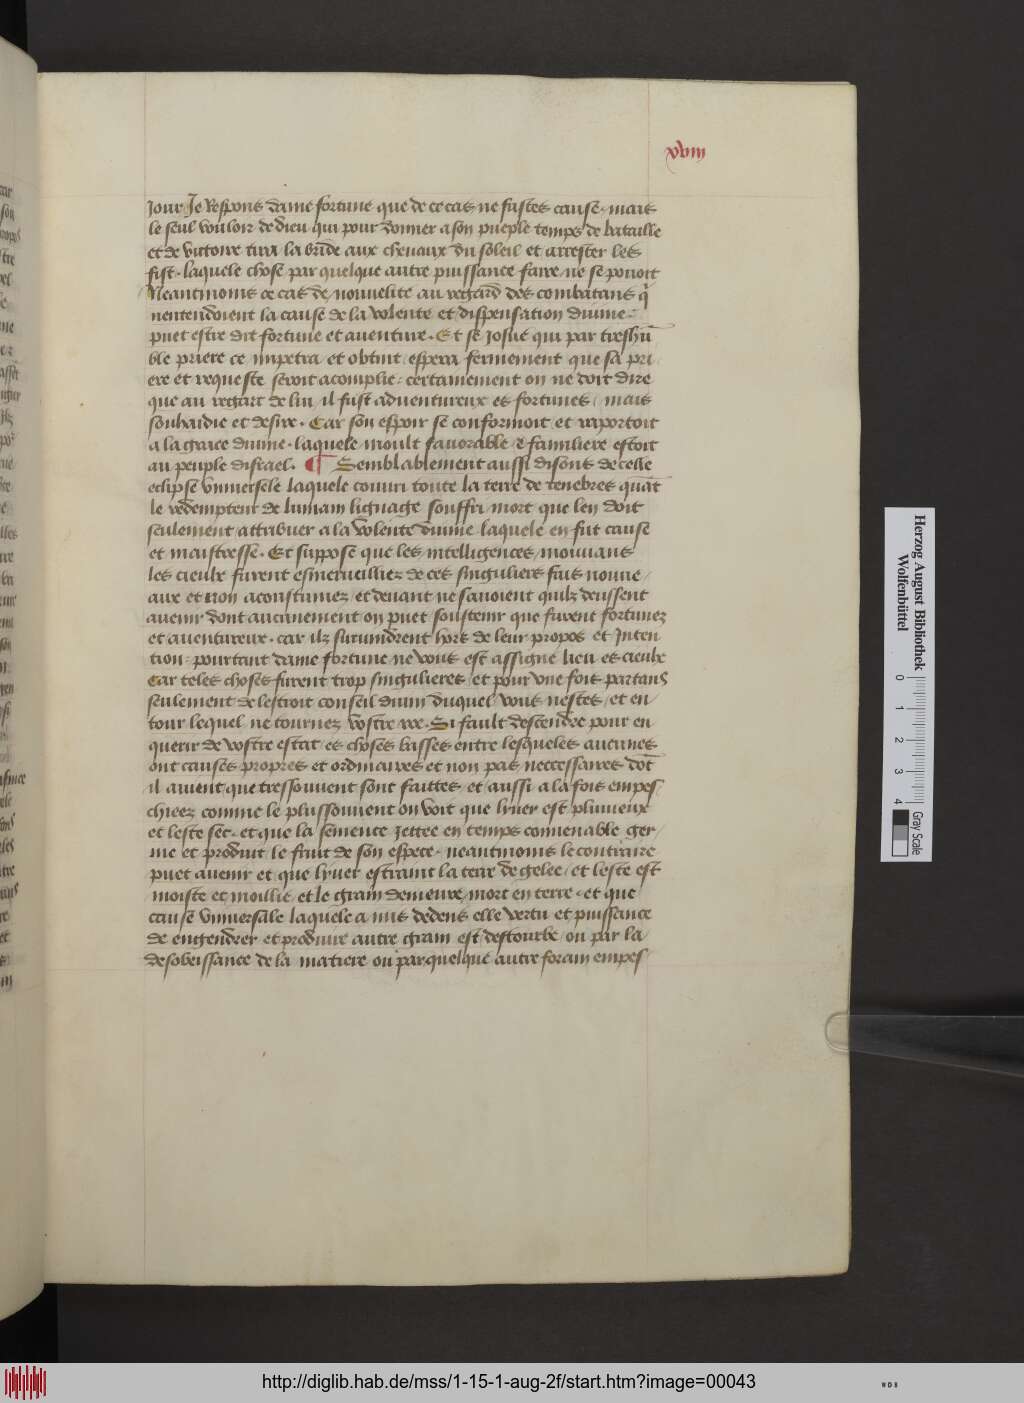 xviij
Jour Je Respons dame fortune que de ce cas ne fustes cause. mais
le seul vouloir de dieu qui pour donner a son pueple temps de bataille
et de victoire tira la bride aux chevaux du soleil et arrester les
fist. laquele chose par quelque autre puissance faire ne se pouoit
Neantmoins ce cas de nouvelite au regard des combatans q̃
nentendoient la cause de la volente et dispensation divine.
puet estre dit fortune et aventure. Et se Josue qui par treshũ
ble priere ce impetra et obtint espera fermement que sa pri
ere et requeste seroit acomplie. certainement on ne doit dire
que au regart de lui il fust adventureux es fortunes mais
souhaidie et desire. Car son espoir se conformoit et raportoit
a la grace divine. laquele moult favorable & familiere estoit
au peuple disrael. ¶ Semblablement aussi disons de celle
eclipse universele laquele couvri toute la terre de tenebres quãt
le redempteur de lumain lignage souffri mort que len doit
seulement attribuer a la volente divine laquele en fut cause
et maistresse. Et suppose que les intelligences mouvans
les cieulx furent esmerveilliez de ces singuliers fais nouve/
aux et non acoustumez et devant ne savoient quilz deussent
avenir dont aucunement on puet soustenir que furent fortunez
et aventureux. car ilz survindrent hors de leur propos et Inten
tion. pourtant dame fortune ne vous est assigne lieu es cieulx
Car teles choses furent trop singulieres et pour une fois partans
seulement de lestroit conseil divin duquel vous nestes et en
tour lequel ne tournez vostre roe. Si fault descendre pour en
querir de vostre estat es choses basses entre lesqueles aucunes
ont causes propres et ordinaires et non pas neccessaires dõt
il avient que tressouvent sont faittes et aussi a la fois empes
chiees comme le plussouvent on voit que lyver est pluvieux
et leste sec. et que la semence Jettee en temps convenable ger/
me et produit le fruit de son espece. neantmoins le contraire
puet avenir et que lyver estraint la terre de gelee et leste est
moiste et moullie et le grain demeure mort en terre. et que
cause universale laquele a mis dedens elle vertu et puissance
de engendrer et produire autre grain est destourbe ou par la
desobeissance de la matiere ou par quelque autre forain empes
Herzog August Bibliothek
Wolfenbüttel
0 1 2 3 4
Gray Scale
http://diglib.hab.de/mss/1-15-1-aug-2f/start.htm?image=00043
WDB